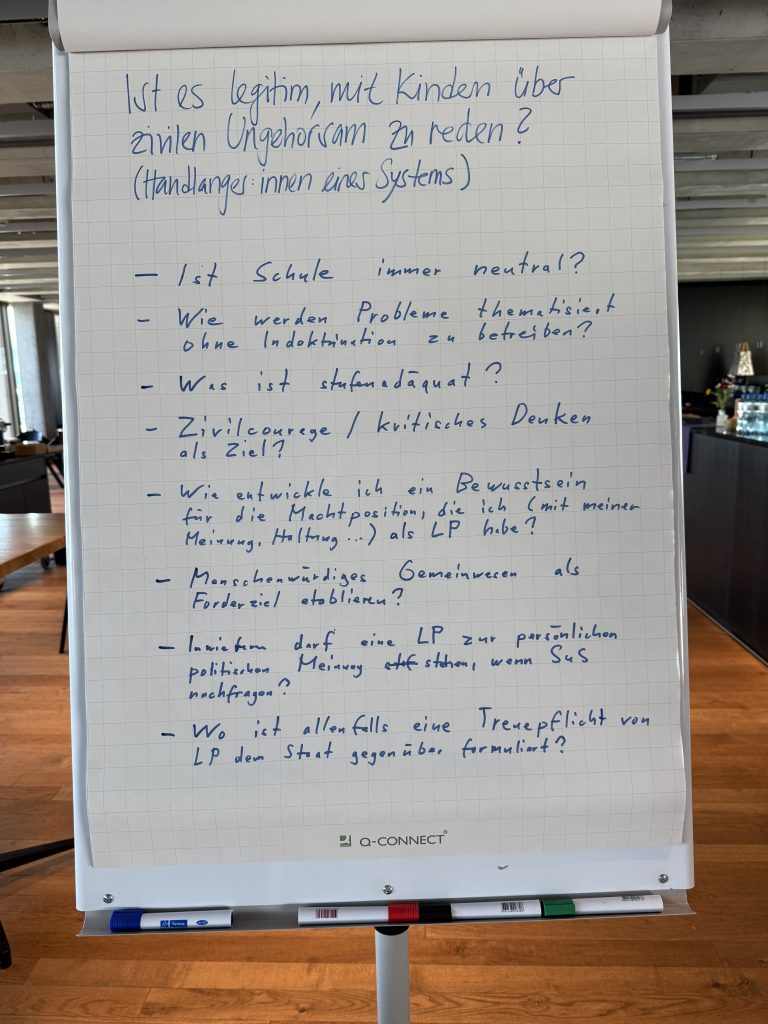 Ist es legitim, mit Kindern über
zivilen Ungehorsam zu reden?
(Handlanger:innen eines Systems)
– Ist Schule immer neutral?
– Wie werden Probleme thematisiert
ohne Indoktrination zu betreiben?
– Was ist stufenadäquat?
– Zivilcourage / kritisches Denken
als Ziel?
– Wie entwickle ich ein Bewusstsein
für die Machtposition, die ich (mit meiner
Meinung, Haltung ...) als LP habe?
– Menschenwürdiges Gemeinwesen als
Förderziel etablieren?
– Inwiefern darf eine LP zur persönlichen
politischen Meinung stehen, wenn SuS
nachfragen?
– Wo ist allenfalls eine Treuepflicht von
LP dem Staat gegenüber formuliert?
Q-CONNECT